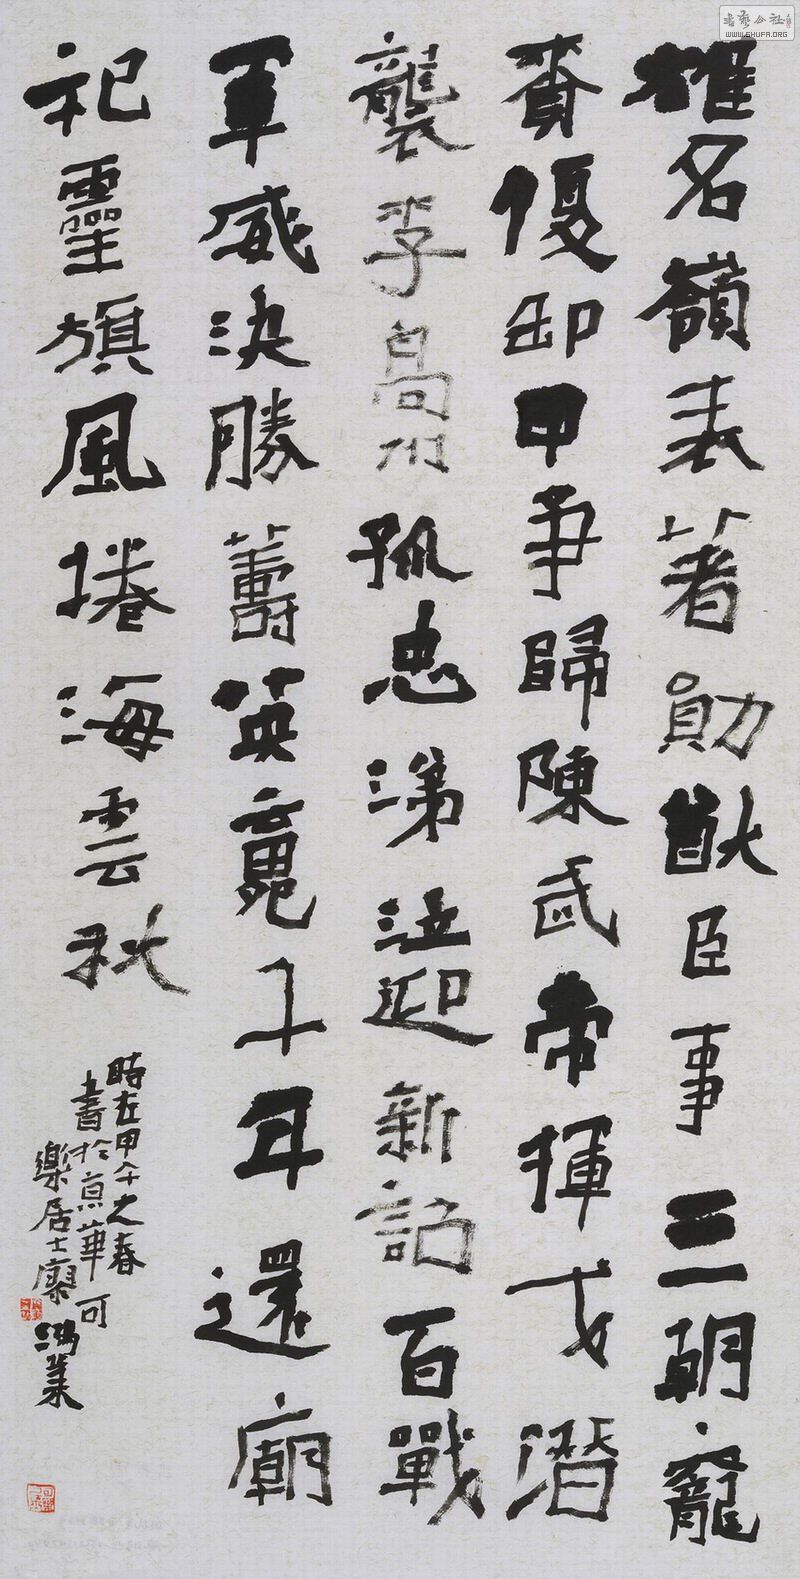 推名嶺表著勛猷臣事三朝寵
賚優卸甲爭歸陳武帝揮戈潛
襲李高州孤忠涕泣迎新詔百戰
軍威決勝籌英魂千年還廟
祀靈旗風捲海雲秋
時在甲午之春
書於京華可
樂居士廖鴻業
書藝公社
WWW.SHUFA.ORG